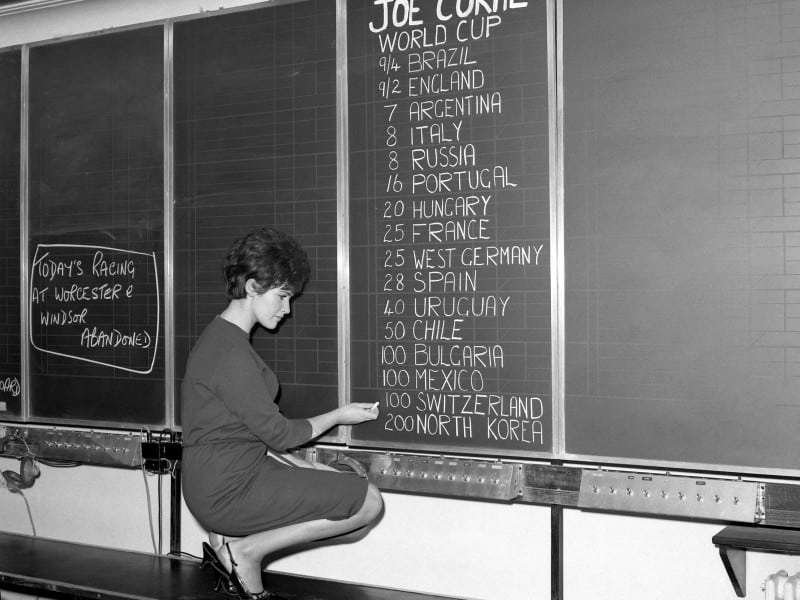 TODAY'S RACING
AT WORCESTER &
WINDSOR
ABANDONED
JOE CORAL
WORLD CUP
9/4 BRAZIL
9/2 ENGLAND
7 ARGENTINA
8 ITALY
8 RUSSIA
16 PORTUGAL
20 HUNGARY
25 FRANCE
25 WEST GERMANY
28 SPAIN
40 URUGUAY
50 CHILE
100 BULGARIA
100 MEXICO
100 SWITZERLAND
200 NORTH KOREA